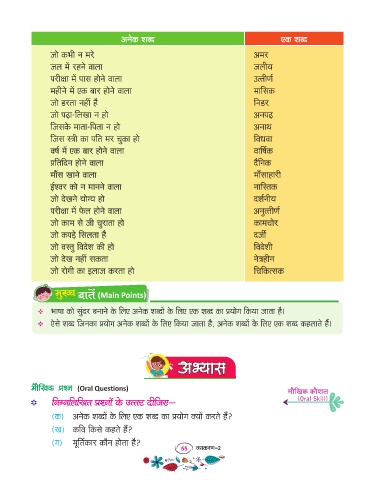 अनेक शब्द एक शब्द
जो कभी न मरे अमर
जल में रहने वाला जलीय
परीक्षा में पास होने वाला उत्तीर्ण
महीने में एक बार होने वाला मासिक
जो डरता नहीं है निडर
जो पढ़ा-लिखा न हो अनपढ़
जिसके माता-पिता न हो अनाथ
जिस स्त्री का पति मर चुका हो विधवा
वर्ष में एक बार होने वाला वार्षिक
प्रतिदिन होने वाला दैनिक
माँस खाने वाला माँसाहारी
ईश्वर को न मानने वाला नास्तिक
जो देखने योग्य हो दर्शनीय
परीक्षा में फेल होने वाला अनुत्तीर्ण
जो काम से जी चुराता हो कामचोर
जो कपड़े सिलता है दर्जी
जो वस्तु विदेश की हो विदेशी
जो देख नहीं सकता नेत्रहीन
जो रोगी का इलाज करता हो चिकित्सक
मुख्य बातें (Main Points)
भाषा को सुंदर बनाने के लिए अनेक शब्दों के लिए एक शब्द का प्रयोग किया जाता है।
ऐसे शब्द जिनका प्रयोग अनेक शब्दों के लिए किया जाता है, अनेक शब्दों के लिए एक शब्द कहलाते हैं।
अभ्यास
मौखिक प्रश्न (Oral Questions)
मौखिक कौशल
(Oral Skill)
निम्नलिखित प्रश्नों के उत्तर दीजिए–
(क) अनेक शब्दों के लिए एक शब्द का प्रयोग क्यों करते हैं?
(ख) कवि किसे कहते हैं?
(ग) मूर्तिकार कौन होता है?
55 व्याकरण–2